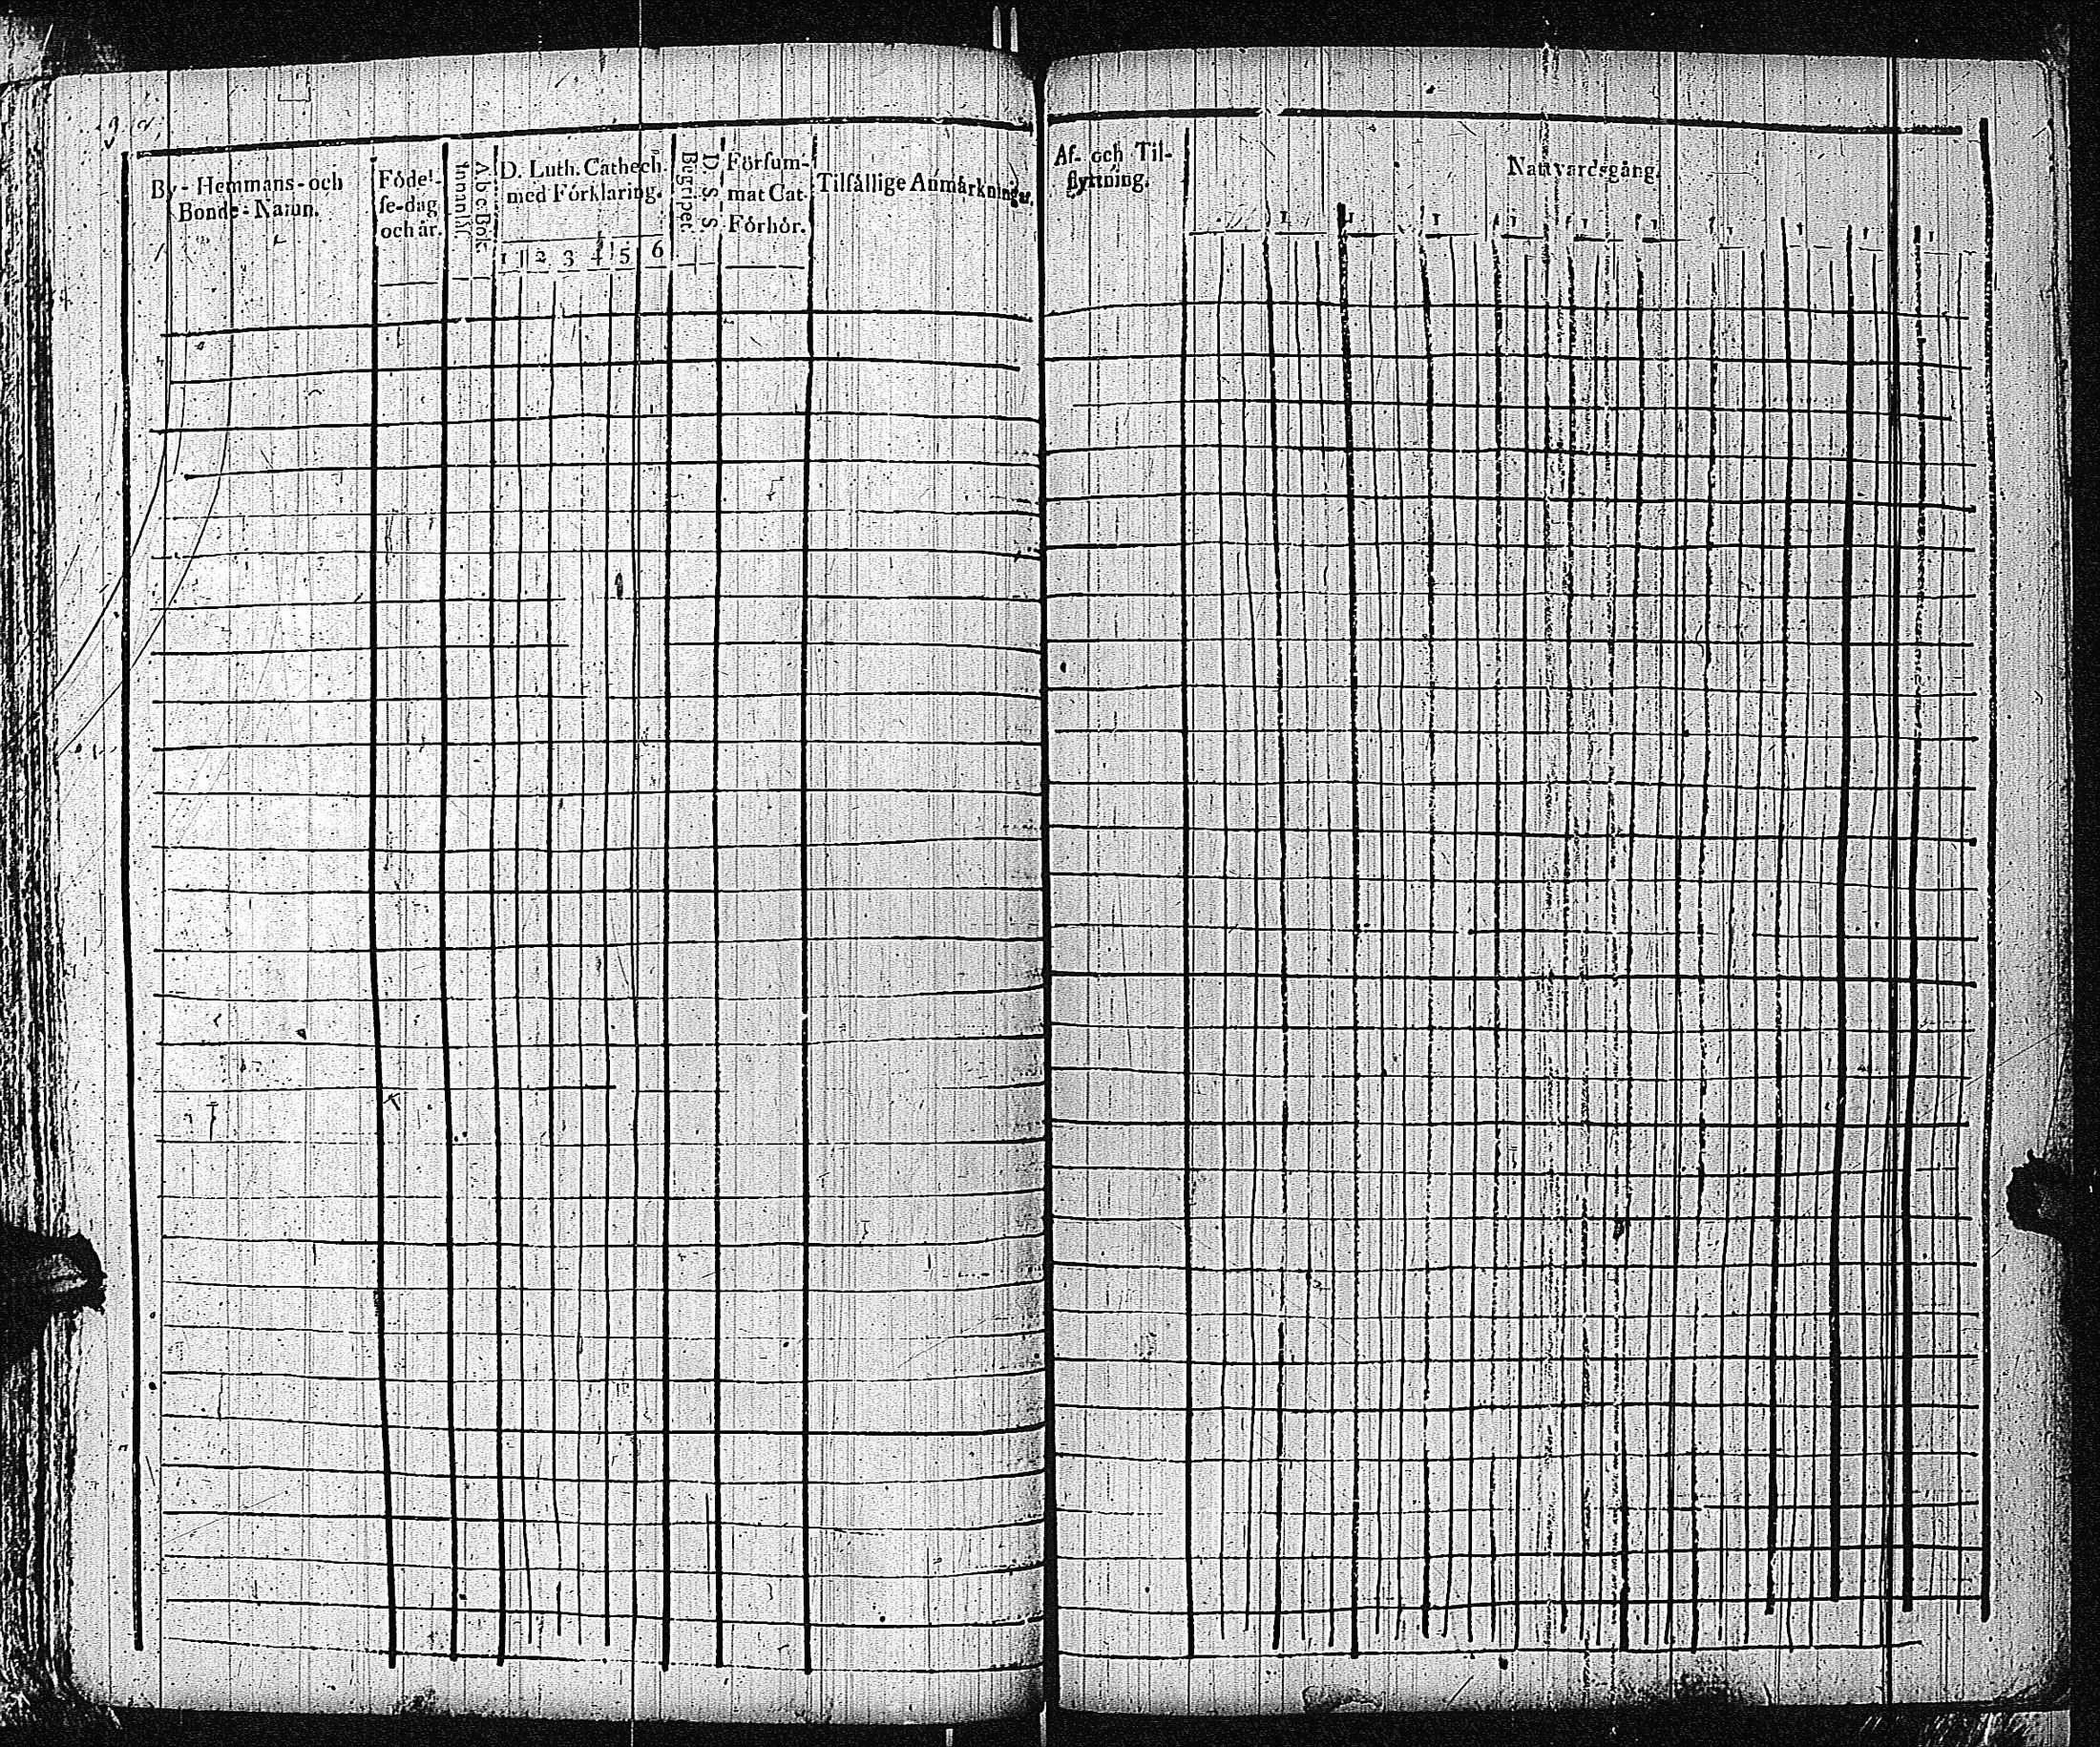 By-Hemmans-och
Bonde-Namn.
Födel-
se-dag
och år.
A.b.c.Bok.
Innanläs.
D. Luth. Cathech.
med Förklaring.
1 2 3 4 5 6
D. S. S.
Begripet
Försum-
mat Cat.
Förhör.
Tilfällige Anmärkningar.
Af- och Til-
flyttning.
Nattvardsgång.
1 1 1 1 1 1 1 1 1 1